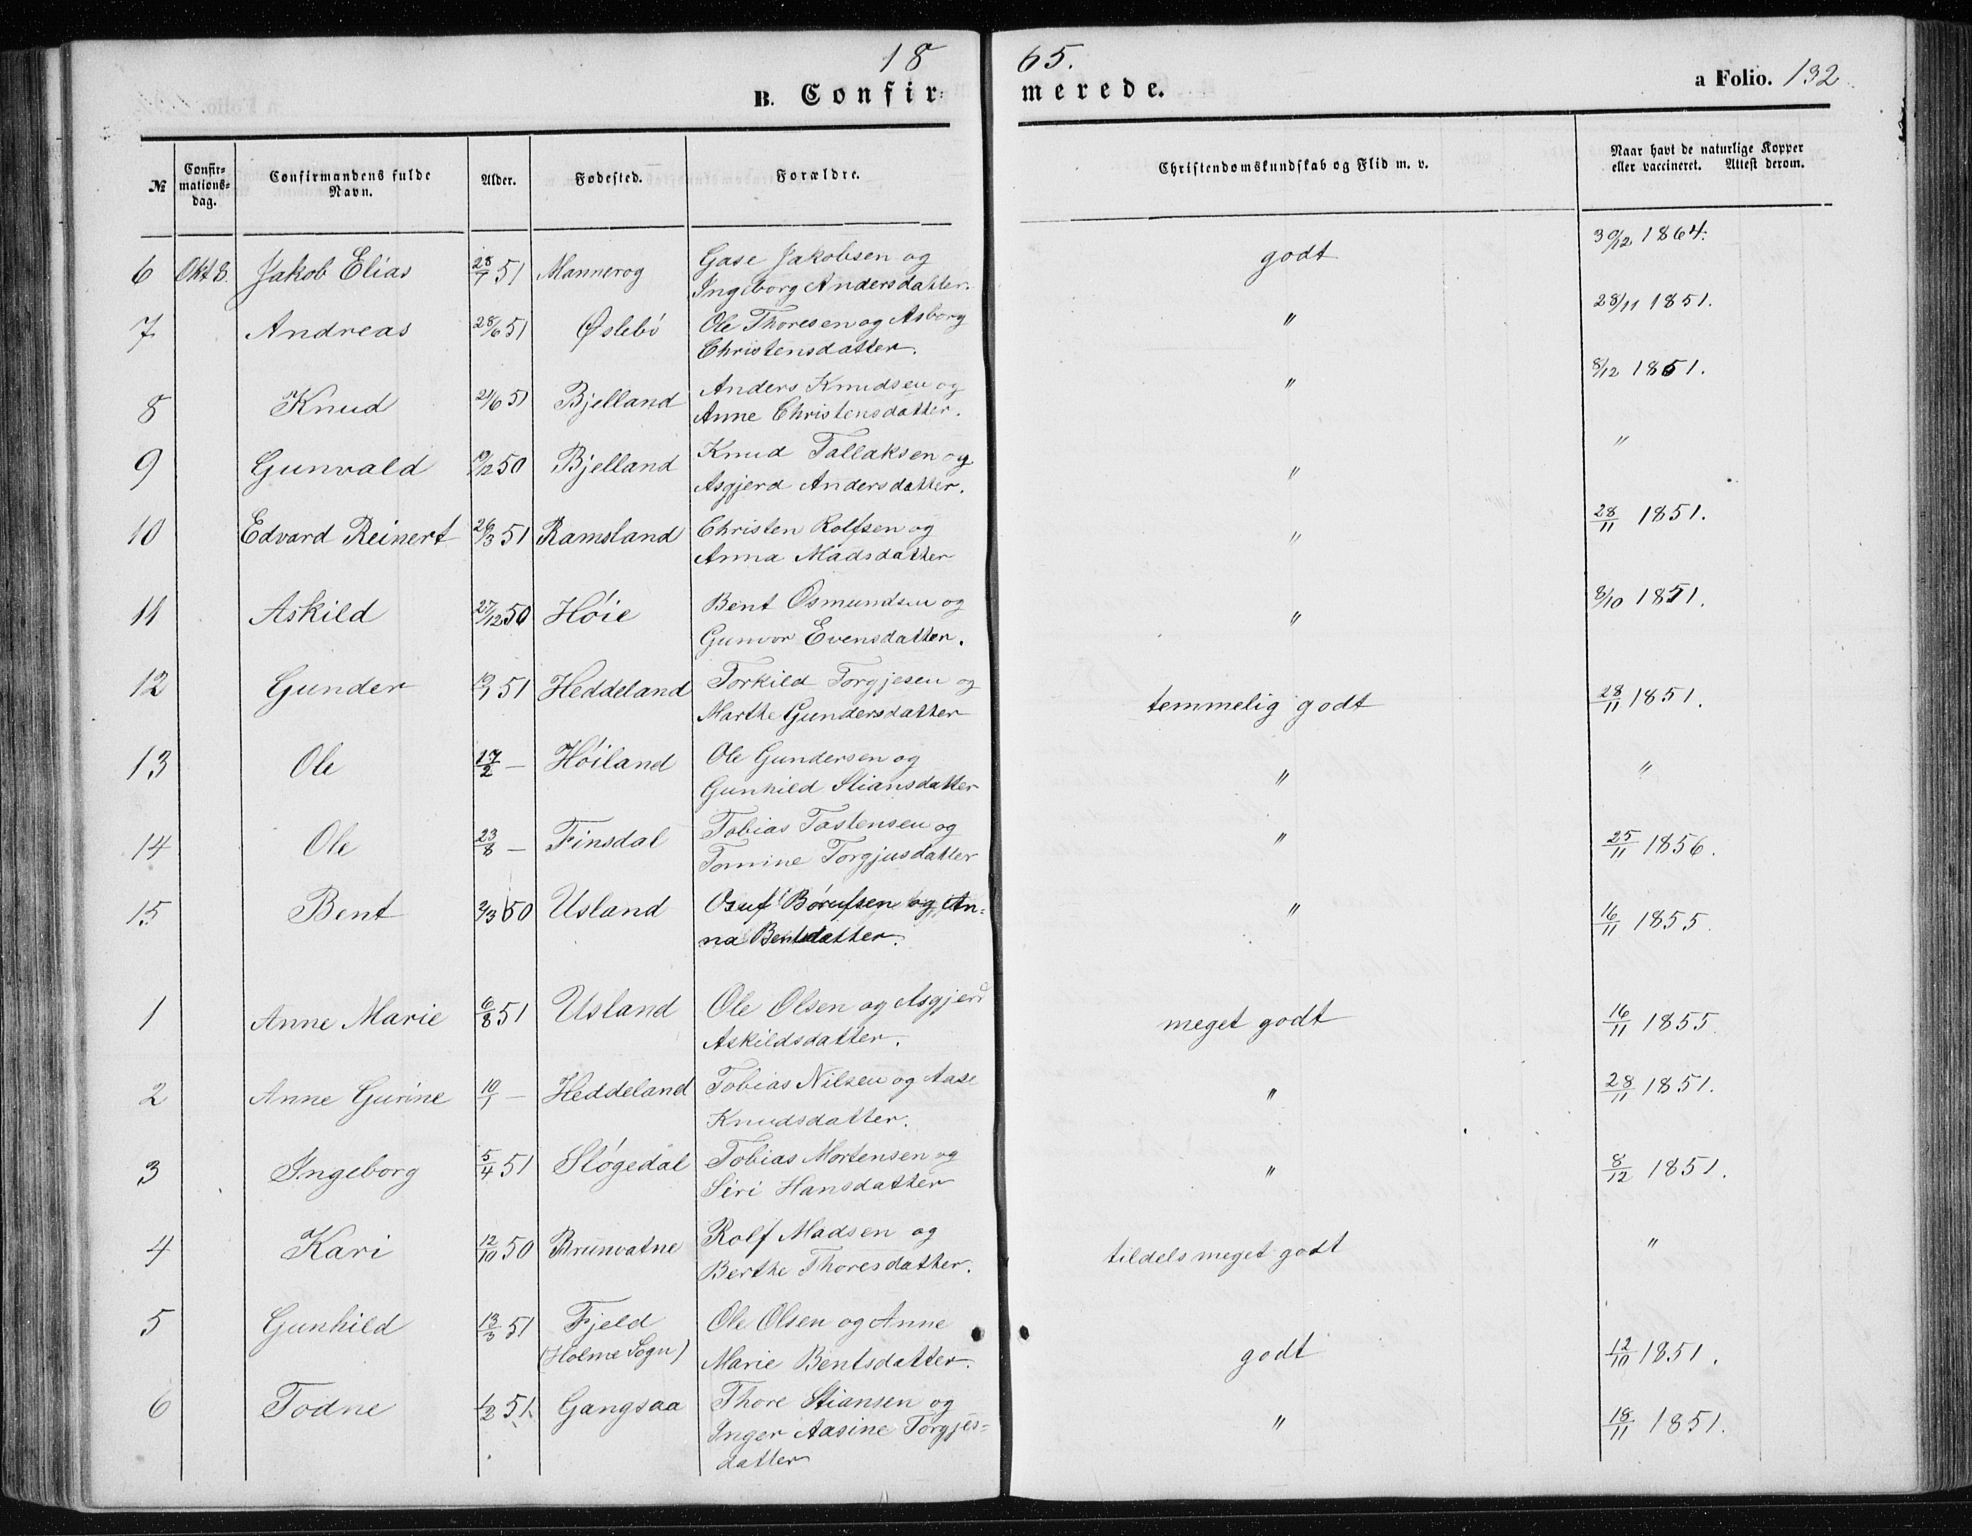 18 65.
B. Confir= merede. a Folio. 132
№ Confir-mations-dag. Confirmandens fulde Navn. Alder. Fødested. Forældre. Christendomskundskab og Flid m. v. Naar havt de naturlige Kopper eller vaccineret. Attest derom.
6 Okt 8. Jakob Elias 28/7 51 Mannerog Gase Jakobsen og godt 30/12 1864.
Ingeborg Andersdatter.
7 Andreas 28/6 51 Øslebö Ole Thoresen og Asborg " 28/11 1851.
Christensdatter.
8 Knud 21/6 51 Bjelland Anders Knudsen og " 8/12 1851.
Anne Christensdatter.
9 Gunvald 19/12 50 Bjelland Knud Tallaksen og " "
Asgjerd Andersdatter.
10 Edvard Reinert 26/3 51 Ramsland Christen Rolfsen og " 28/11 1851.
Anna Madsdatter
11 Askild 27/12 50 Høie Bent Osmundsen og " 8/10 1851.
Gunvor Evensdatter.
12 Gunder 19/1 51 Heddeland Torkild Torgjesen og temmelig godt 28/11 1851.
Marthe Gundersdatter
13 Ole 17/2 — Høiland Ole Gundersen og " "
Gunhild Stiansdatter
14 Ole 23/8 — Finsdal Tobias Tostensen og " 25/11 1856.
Tomine Torgjusdatter
15 Bent 2/3 50 Usland Osuf Børufsen og An= " 16/11 1855.
na Bentsdatter.
1 Anne Marie 6/8 51 Usland Ole Olsen og Asgjerd meget godt 16/11 1855.
Askildsdatter.
2 Anne Gurine 10/1 — Heddeland Tobias Nilsen og Aase " 28/11 1851.
Knudsdatter.
3 Ingeborg 5/4 51 Støgedal Tobias Mortensen og " 8/12 1851.
Siri Hansdatter
4 Kari 12/10 50 Brunvatne Rolf Madsen og tildels meget godt "
Berthe Thoresdatter.
5 Gunhild 13/3 51 Fjeld Ole Olsen og Anne
(Holme Sogn) Marie Bentsdatter. godt 12/10 1851.
6 Todne 1/2 51. Gangsaa Thore Stiansen og " 18/11 1851.
Inger Aasine Torgjes=
datter